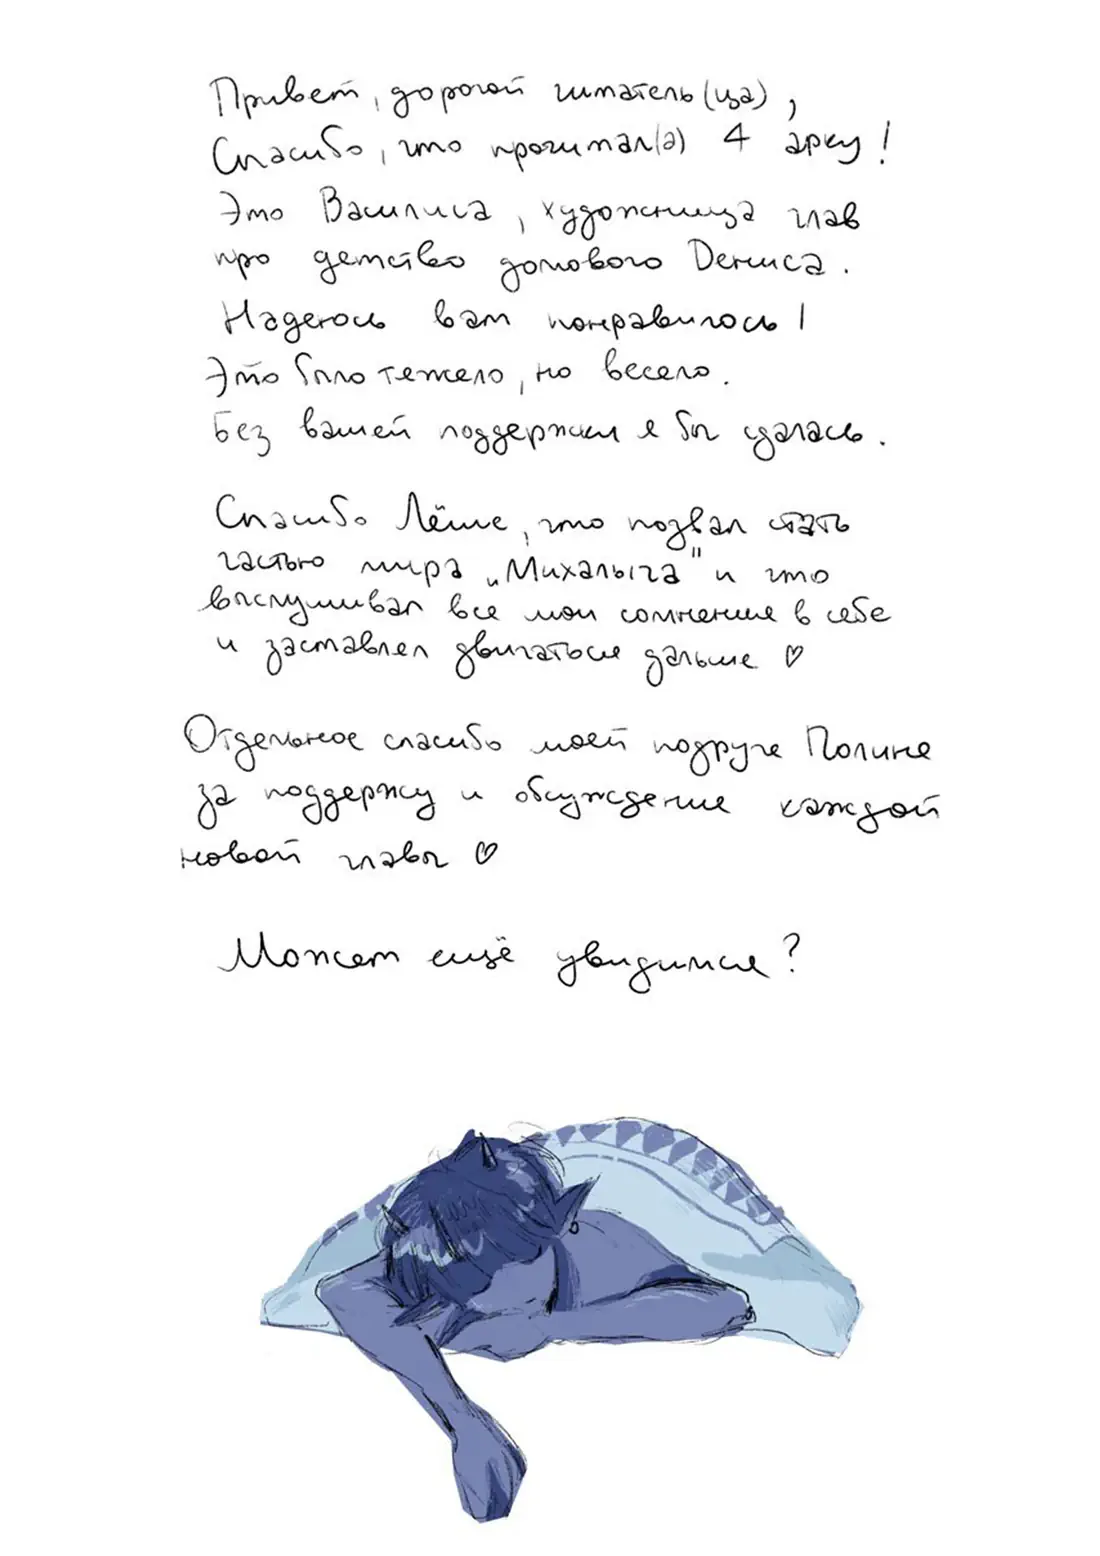 Привет, дорогой читатель(ца),
Спасибо, что прочитал(а) 4 арку!
Это Василиса, художница глав
про детство домового Дениса.
Надеюсь вам понравилось!
Это было тяжело, но весело.
Без вашей поддержки я бы сдалась.
Спасибо Лёше, что позвал стать
частью мира „Михалыча" и что
выслушивал все мои сомнения в себе
и заставлял двигаться дальше ♡
Отдельное спасибо моей подруге Полине
за поддержку и обсуждение каждой
новой главы ♡
Может ещё увидимся?